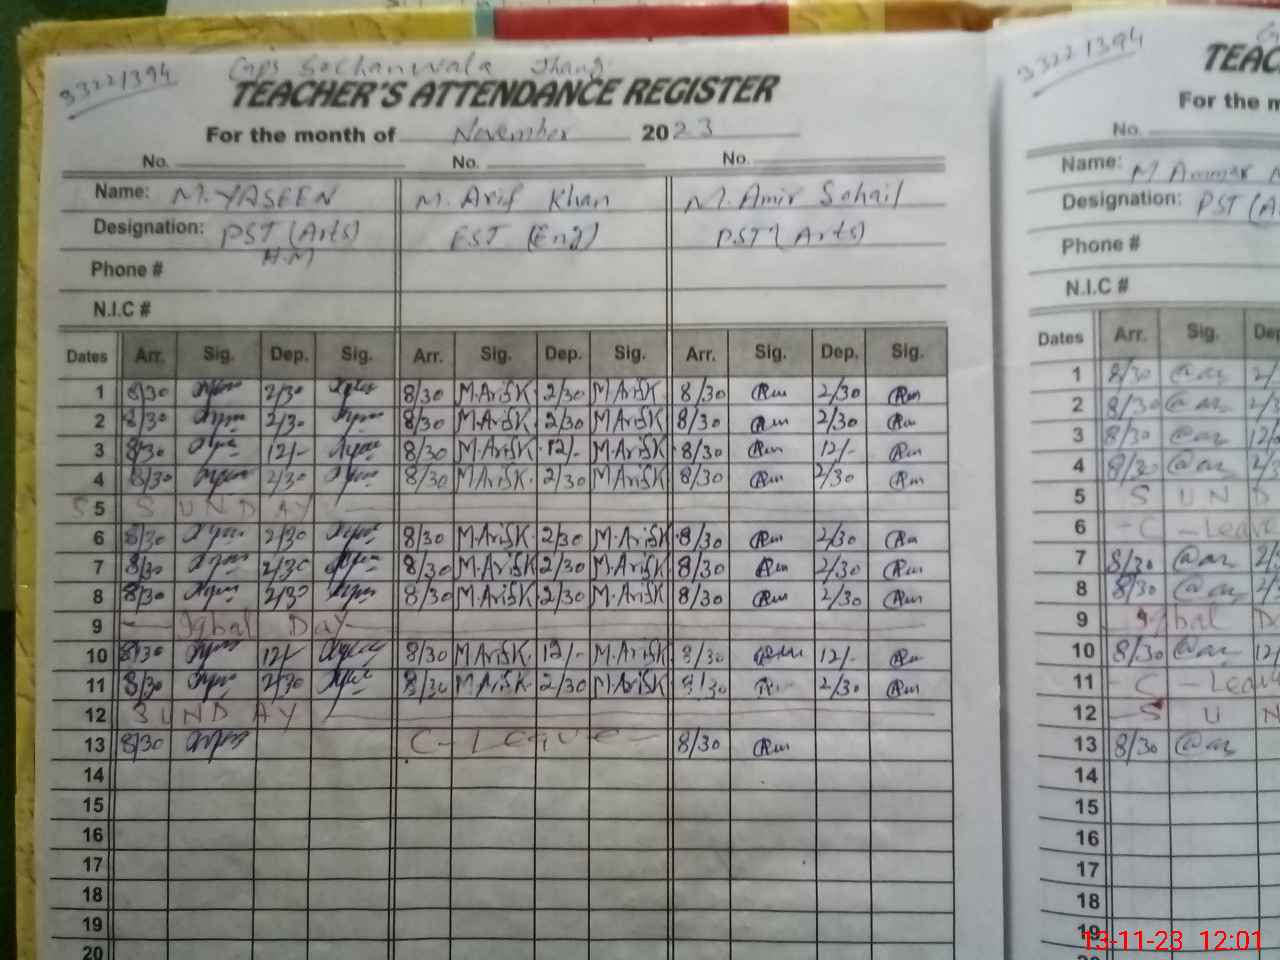 33221394 Gps Sochanwala Jhang
TEACHER'S ATTENDANCE REGISTER
For the month of November 2023
No. No. No.
Name: M.YASEEN M. Arif Khan M. Amir Sohail
Designation: PST (Arts) EST (Eng) PST (Arts)
H.M
Phone #
N.I.C #
Dates Arr. Sig. Dep. Sig. Arr. Sig. Dep. Sig. Arr. Sig. Dep. Sig.
1 8/30 2/30 8/30 M.ArifK 2/30 M.ArifK 8/30 2/30
2 8/30 2/30 8/30 M.ArifK 2/30 M.ArifK 8/30 2/30
3 8/30 12/- 8/30 M.ArifK 12/- M.ArifK 8/30 12/-
4 8/30 2/30 8/30 M.ArifK 2/30 M.ArifK 8/30 2/30
5 SUNDAY
6 8/30 2/30 8/30 M.ArifK 2/30 M.ArifK 8/30 2/30
7 8/30 2/30 8/30 M.ArifK 2/30 M.ArifK 8/30 2/30
8 8/30 2/30 8/30 M.ArifK 2/30 M.ArifK 8/30 2/30
9 Iqbal Day
10 8/30 12/- 8/30 M.ArifK 12/- M.ArifK 8/30 12/-
11 8/30 2/30 8/30 M.ArifK 2/30 M.ArifK 8/30 2/30
12 SUNDAY
13 8/30 C-Leave 8/30
14
15
16
17
18
19
20
33221394
TEAC
For the m
No.
Name: M. Ammar
Designation: PST (A
Phone #
N.I.C #
Dates Arr. Sig. Dep
1 8/30 2/
2 8/30 2/
3 8/30 12/
4 8/30 2/
5 SUND
6 -C-Leave
7 8/30 2/
8 8/30 2/
9 Iqbal D
10 8/30 12/
11 -C-Leave
12 SUN
13 8/30
14
15
16
17
18
19
13-11-23 12:01